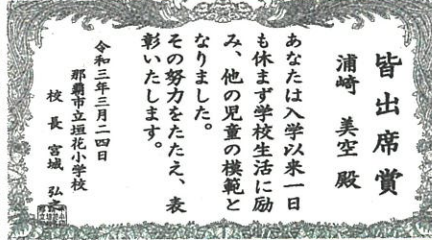 皆出席賞
浦崎　美空　殿
あなたは入学以来一日
も休まず学校生活に励
み、他の児童の模範と
なりました。
その努力をたたえ、表
彰いたします。
令和三年三月二四日
那覇市立垣花小学校
校長　宮城　弘